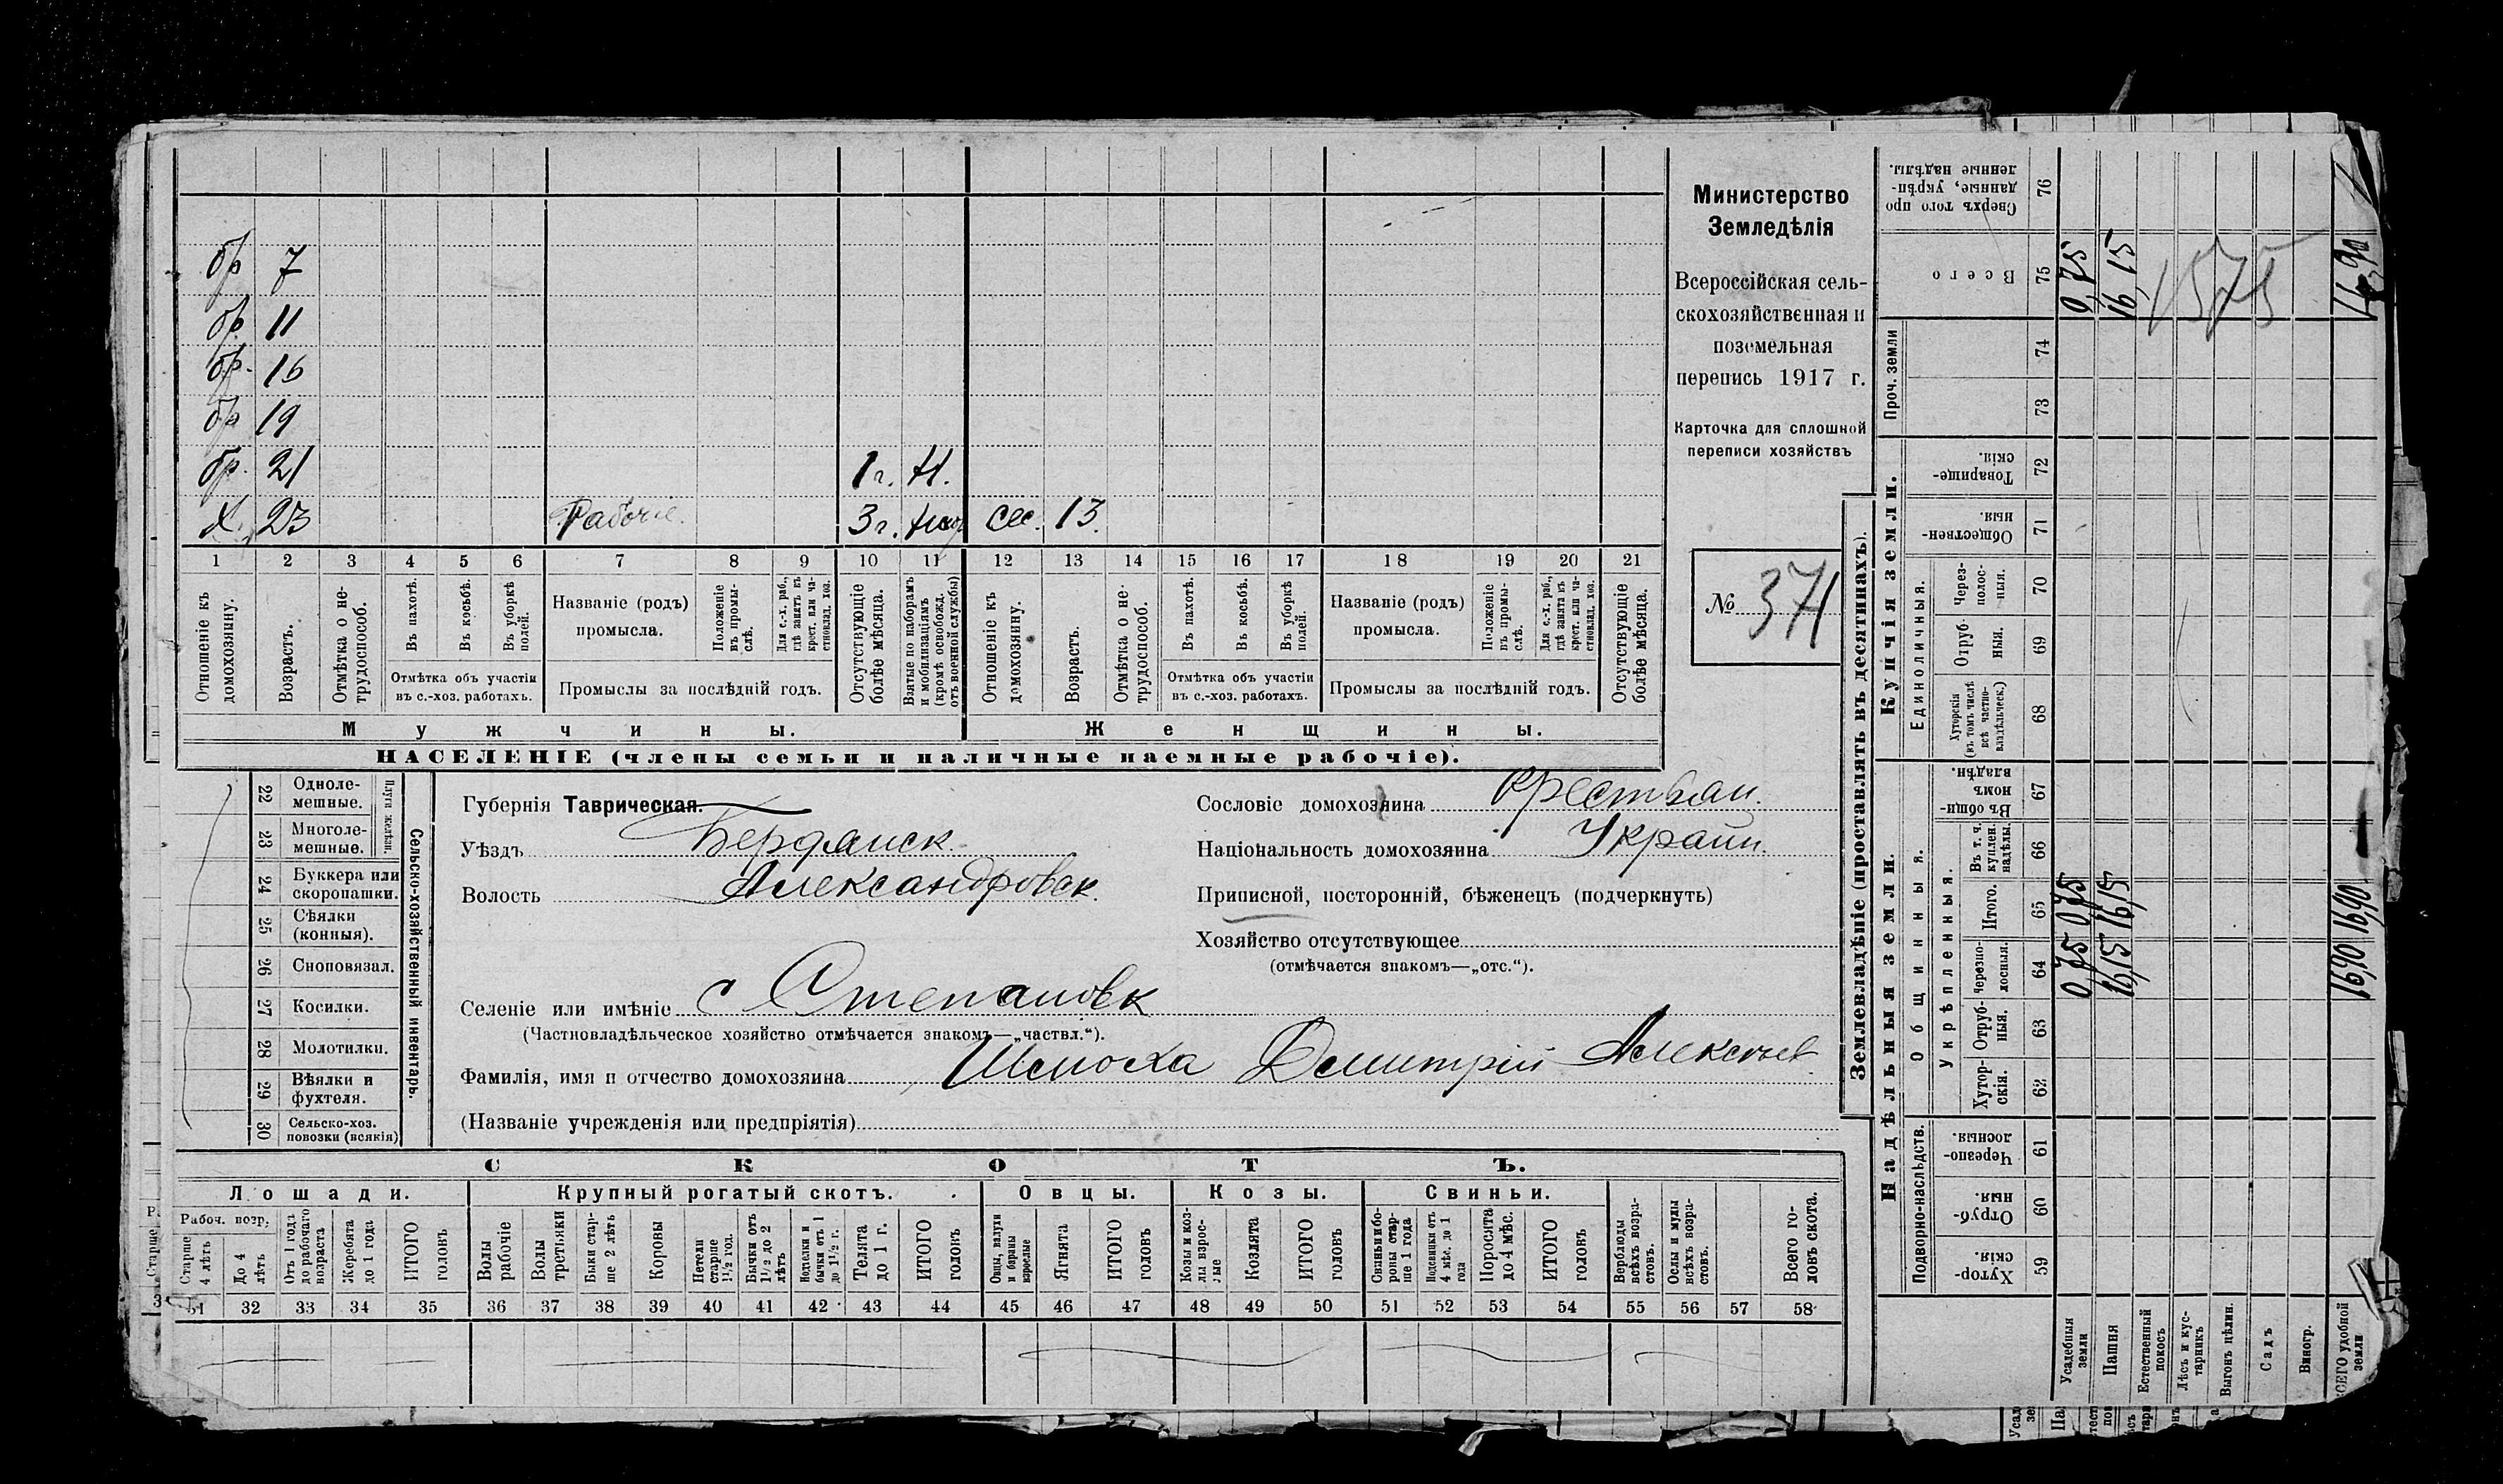 бр 7
бр. 11
бр. 16
бр 19
бр. 21 1 г. Н.
Х. 23 Рабочіе. 3 г. сес. 13
1 2 3 4 5 6 7 8 9 10 11 12 13 14 15 16 17 18 19 20 21
Отношеніе къ домохозяину.
Возрастъ.
Отмѣтка о не-трудоспособ.
Въ пахотѣ.
Въ косьбѣ.
Въ уборкѣ полей.
Отмѣтка объ участіи въ с.-хоз. работахъ.
Названіе (родъ) промысла.
Положеніе въ промы-слѣ.
Для с.-х. раб., гдѣ занятъ въ крест. или ча-стновлад. хоз.
Промыслы за послѣдній годъ.
Отсутствующіе болѣе мѣсяца.
Взятые по наборамъ и мобилизаціямъ (кромѣ освобожд. отъ военной службы)
Отношеніе къ домохозяину.
Возрастъ.
Отмѣтка о не-трудоспособ.
Въ пахотѣ.
Въ косьбѣ.
Въ уборкѣ полей.
Отмѣтка объ участіи въ с.-хоз. работахъ.
Названіе (родъ) промысла.
Положеніе въ промы-слѣ.
Для с.-х. раб., гдѣ занята въ крест. или ча-стновлад. хоз.
Промыслы за послѣдній годъ.
Отсутствующіе болѣе мѣсяца.
Мужчины. Женщины.
НАСЕЛЕНІЕ (члены семьи и наличные наемные рабочіе).
Министерство
Земледѣлія
Всероссійская сель-
скохозяйственная и
поземельная
перепись 1917 г.
Карточка для сплошной
переписи хозяйствъ
№ 371
22 Однолемешные.
23 Многолемешные.
Плуги желѣзн.
24 Буккера или скоропашки.
25 Сѣялки (конныя).
26 Сноповязал.
27 Косилки.
28 Молотилки.
29 Вѣялки и фухтеля.
30 Сельско-хоз. повозки (всякія)
Сельско-хозяйственный инвентарь.
Губернія Таврическая.
Уѣздъ Бердянск
Волость Александровск.
Селеніе или имѣніе с Степановк
(Частновладѣльческое хозяйство отмѣчается знакомъ—„частвл.“).
Фамилія, имя и отчество домохозяина Дмитрій Алексѣев
(Названіе учрежденія или предпріятія)
Сословіе домохозяина крестьян.
Національность домохозяина Украин.
Приписной, посторонній, бѣженецъ (подчеркнуть)
Хозяйство отсутствующее
(отмѣчается знакомъ—„отс.“).
СКОТЪ.
Лошади. Крупный рогатый скотъ. Овцы. Козы. Свиньи.
Рабоч. возр.
Старше 4 лѣтъ
До 4 лѣтъ
Отъ 1 года до рабочаго возраста
Жеребята до 1 года
ИТОГО головъ
Волы рабочіе
Волы третьяки
Быки стар-ше 2 лѣтъ
Коровы
Нетели старше 1½ год.
Бычки отъ 1½ до 2 лѣтъ
Телки и бычки отъ 1 до 1½ г.
Телята до 1 г.
ИТОГО головъ
Овцы, валухи и бараны взрослые
Ягнята
ИТОГО головъ
Козы и коз-лы взрос-лые
Козлята
ИТОГО головъ
Свиньи и бо-ровы стар-ше 1 года
Подсвинки отъ 4 мѣс. до 1 года
Поросята до 4 мѣс.
ИТОГО головъ
Верблюды всѣхъ возра-стовъ.
Ослы и мулы всѣхъ возра-стовъ.
Всего го-ловъ скота.
31 32 33 34 35 36 37 38 39 40 41 42 43 44 45 46 47 48 49 50 51 52 53 54 55 56 57 58
Землевладѣніе (проставлять въ десятинахъ).
Купчія земли.
Надѣльныя земли.
Проч. земли
Единоличныя.
Общинныя.
Укрѣпленныя.
Подворно-наслѣдств.
Сверхъ того про даные, укрѣп-ленные надѣлы. 76
Всего 75 0,75 16,15 1575
74
73
Товарище-скія. 72
Обществен-ныя. 71
Через-полос-ныя. 70
Отруб-ныя. 69
Хуторскія (въ томъ числѣ всѣ частно-владѣльческ.) 68
Въ общин-номъ владѣн. 67
Въ т. ч. куплен. надѣлы. 66
Итого. 65 0,75 16,15 16,90
Черезпо-лосныя. 64 0,75 16,15 16,90
Отруб-ныя. 63
Хутор-скія. 62
Черезпо-лосныя. 61
Отруб-ныя. 60
Хутор-скія. 59
Усадебныя земли
Пашня
Естественный покосъ
Лѣсъ и кус-тарникъ
Выгонъ цѣлин.
Садъ
Виногр.
ВСЕГО удобной земли